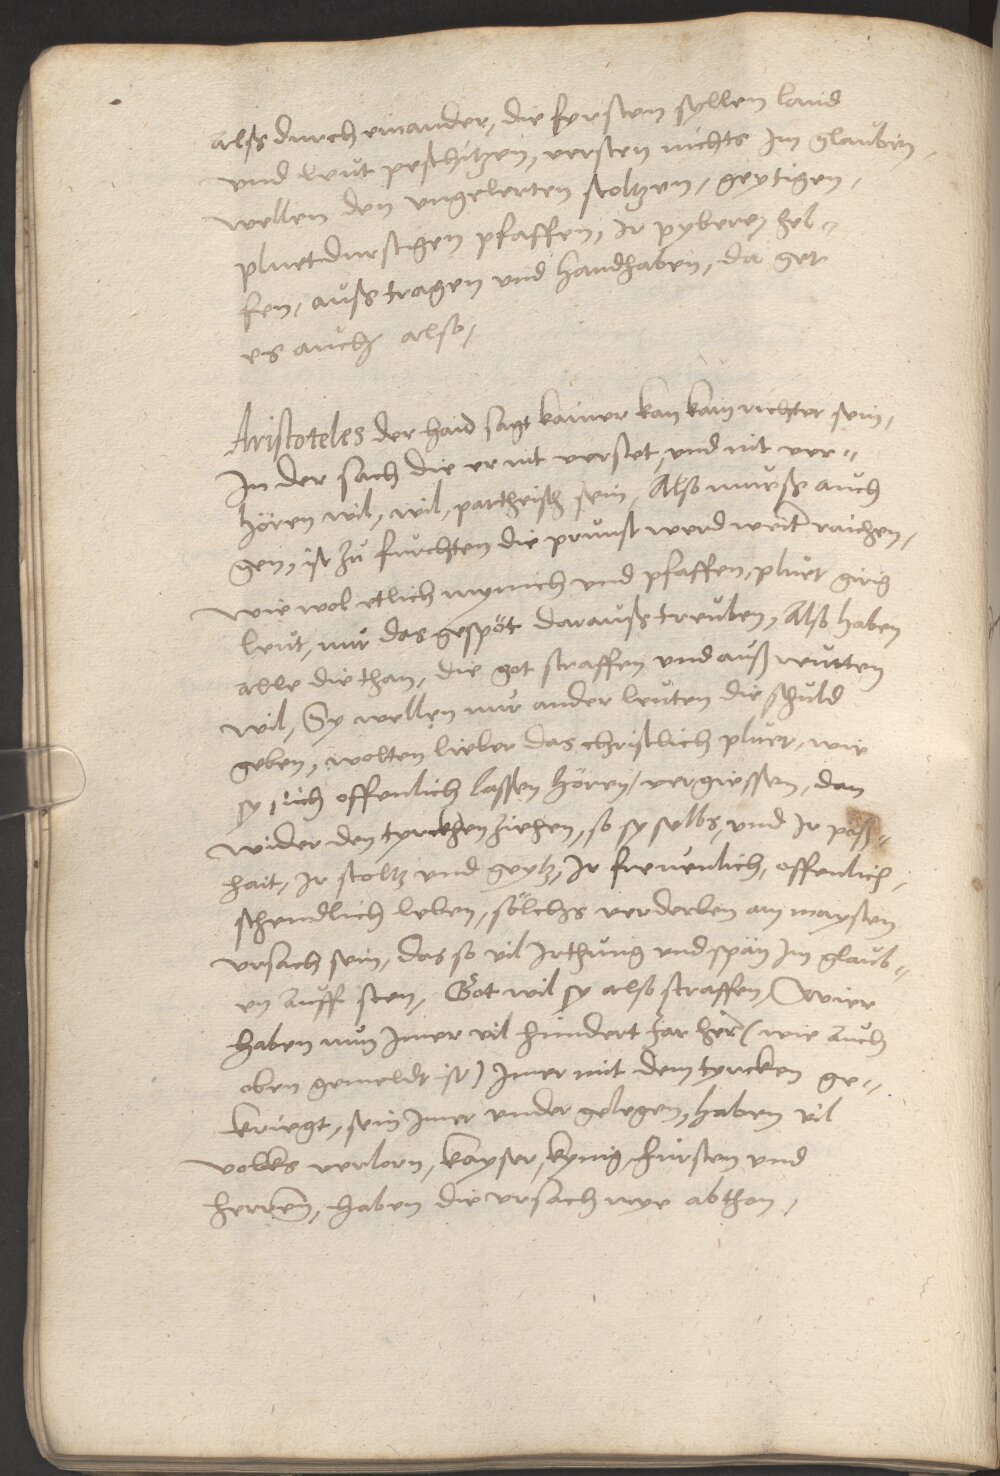 alß durch einander, die fyrsten syllen land
und leut peschutzen, versten nichts Im glauben,
wellen den ungelerten stoltzen, geytigen,
pluetdurstigen pfaffen, Ir pyberey hel-
fen, auß tragen und handhaben, da get
es auch also,
Aristoteles der haid sagt kainer kan kain richter sein,
In der sach die er nit verstet, und nit ver-
hören wil, wil partheisch sein, Also mueß auch
gen, ist zu furchten die prunst werd weit raichen,
wie wol etlich mynnich und pfaffen, pluet girig
leut, nur das gespöt darauß treuben, Also haben
alle die than, die got straffen und auß reutten
wil, Sy wellen nur ander leuten die schuld
geben, wolten lieber das christlich pluet, wie
sy sich offenlich lassen hören, vergiessen, dan
wider den tyrcken ziehen, so sy selbs, und Ir poß-
hait, Ir stoltz und geytz, Ir frevenlich, offenlich,
schendlich leben, sölchs verderben am maysten
ursach sein, das so vil Irthung und spän Im glaub-
en auff sten, Got wil sy also straffen, Wier
haben nun Imer vil hundert Jar her (wie auch
oben gemeldt ist) Imer mit dem tyrcken ge-
kriegt, sein Imer under gelegen, haben vil
volks verlorn, kayser, kynig, fursten und
herren, haben die ursach nye abthan,